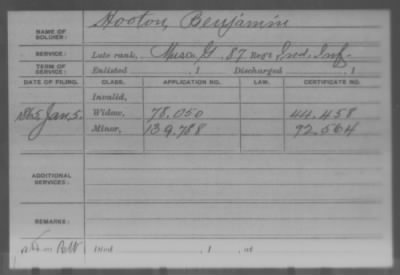 NAME OF SOLDIER: Hooton, Benjamin
SERVICE: Late rank, Musc. G 87 Reg't Ind. Inf.
TERM OF SERVICE: Enlisted , 1 Discharged , 1
DATE OF FILING. CLASS. APPLICATION NO. LAW. CERTIFICATE NO.
Invalid,
1865 Jan. 5. Widow, 78.050 44.458
Minor, 139.788 92.564
ADDITIONAL SERVICES:
REMARKS:
Died , 1 , at